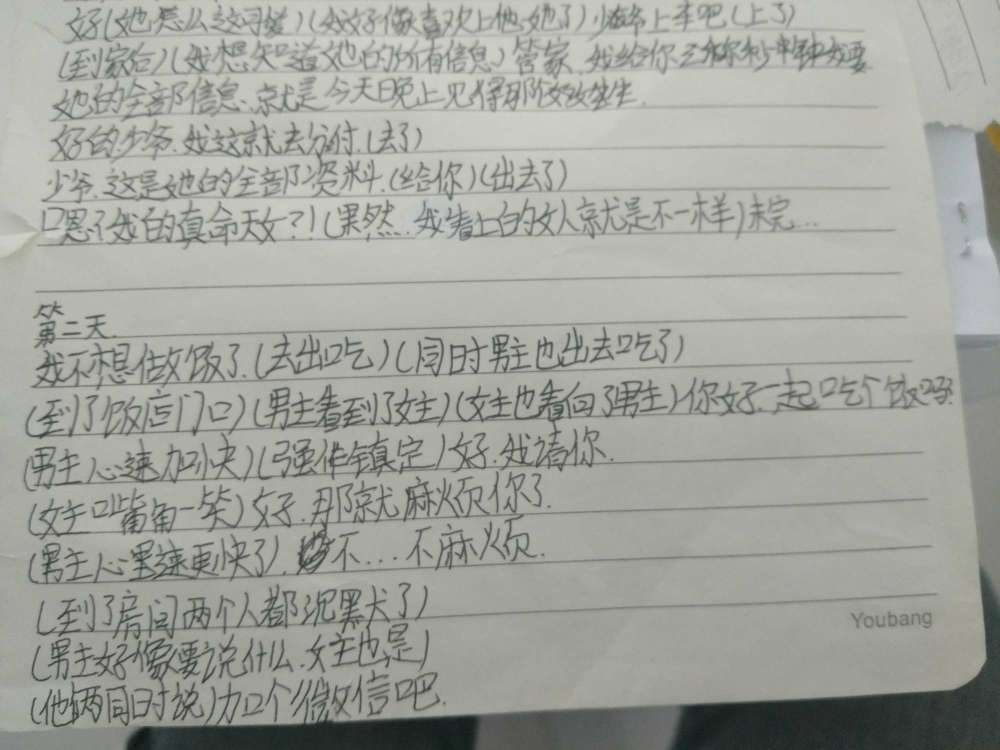 好(她怎么这可爱)(我好像喜欢上他她了)少爷上车吧(上了)
(到家后)(我想知道她的所有信息)管家,我给你三秒钟我要
她的全部信息,就是今天晚上见得那个女生.
好的少爷.我这就去分付.(去了)
少爷.这是她的全部资料.(给你)(出去了)
口恩?我的真命天女?!(果然..我看上的女人就是不一样)未完...
第二天.
我不想做饭了.(去出吃)(同时男主也出去吃了)
(到了饭店门口)(男主看到了女主)(女主也看向了男主)你好.一起吃个饭吗
(男主心速加快)(强作镇定)好.我请你.
(女主嘴角一笑)好.那就麻烦你了.
(男主心里速更快了).不...不麻烦.
(到了房间两个人都沉默了)
(男主好像要说什么.女主也是)
(他俩同时说)加个微信吧.
Youbang